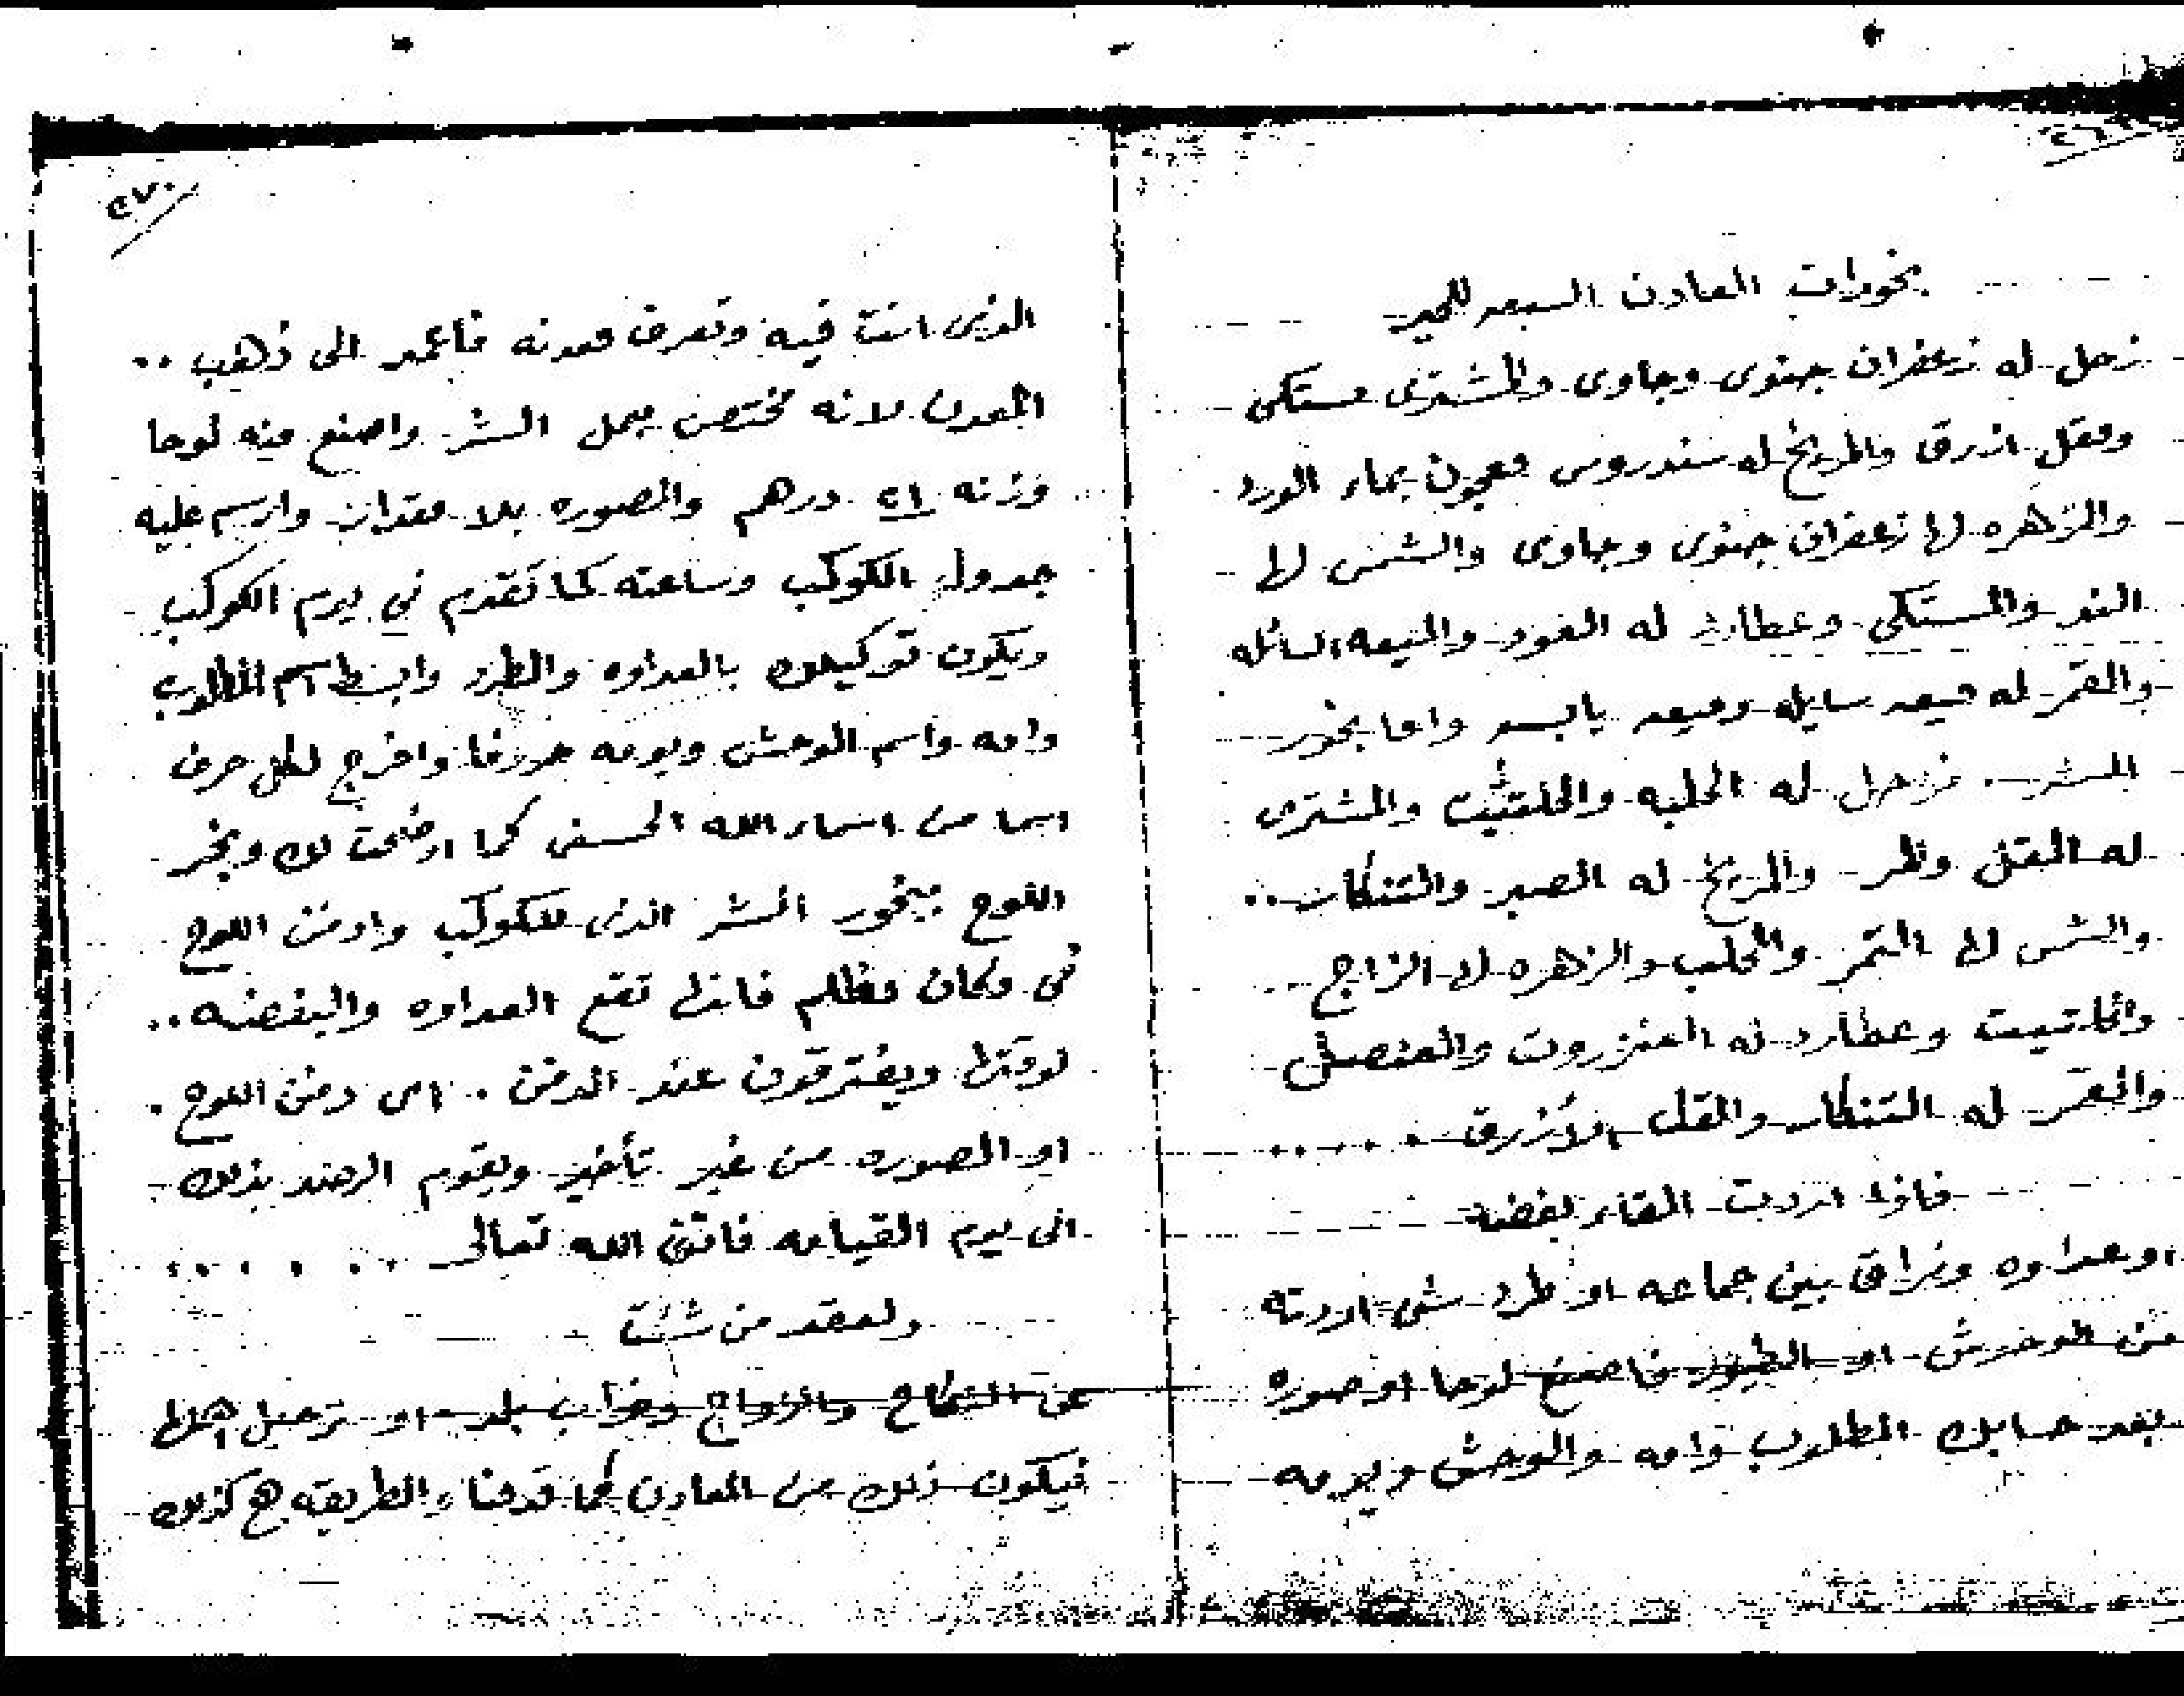 ٢٦٩
بخورات المعادن السبعه للخير
زحل له زعفران جنوى وجاوى والمشترى مستكى
ومقل ازرق والمريخ له سندروس معجون بماء الورد
والزهره لها زعفران جنوى وجاوى والشمس لها
الند والمستكى وعطارد له العود والميعه السائله
والقمر له ميعه سايله وميعه يابسه واما بخور
الشر. فزحل له الحلبه والحلتيت والمشترى
له المقل والمر والمريخ له الصبر والتنكار..
والشمس لها التمر والمحلب والزهره لها الزاج
والحلتيت وعطارد له العنزروت والعنصل
والقمر له التنكار والمقل الأزرق . . . . .
فاذا اردت القاء بغضه
او عداوه وفراق بين جماعه او طرد شى اردته
من الوحوش او الطيور فاصنع لوحا او صوره
بعد حسابك المطلوب وامه والوحش ويومه
٢٧٠
الذى انت فيه وتعرف معدنه فاعمد الى ذهب ..
المعدن لانه مختص بعمل الشر واصنع منه لوحا
وزنه ٢١ درهم والصوره بلا مقدار وارسم عليه
جدول الكوكب وساعته كما تقدم فى يوم الكوكب
ويكون توكيلك بالعداوه والطرد وابسط اسم المطلوب
وامه واسم الوحش ويومه حروفا واخرج لكل حرف
اسما من اسماء الله الحسنى كما اوضحت لك وبخر
اللوح ببخور الشر الذى للكوكب وادفن اللوح
فى مكان مظلم فانها تقع العداوه والبغضه ..
لوقتها ويفترقون عند الدفن . اى دفن اللوح .
او الصوره من غير تأخير ويقوم الرصد بذلك
الى يوم القيامه فاتقى الله تعالى . . . . . .
ولعقد من شئت
عن النكاح والزواج وخراب بلد او ترحيل اهلها
فيكون ذلك من المعادن كما قدمنا والطريقه هى كذلك